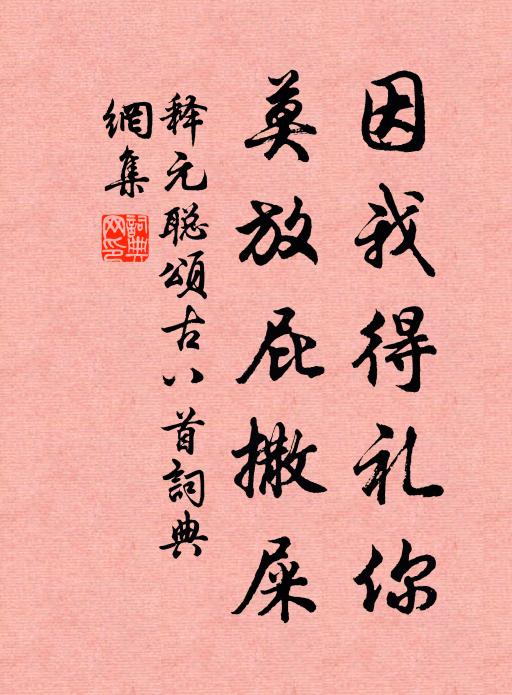 因我得礼你
莫放屁撒屎
释元聪頌古八首詞典
網集
詞典
网印